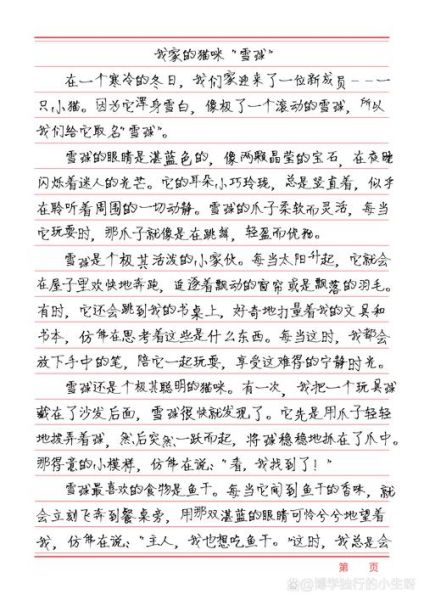 我家的猫咪“雪球”
在一个寒冷的冬日，我们家迎来了一位新成员———一
只小猫。因为它浑身雪白，像极了一个滚动的雪球，所以
我们给它取名“雪球”。
雪球的眼睛是湛蓝色的，像两颗晶莹的宝石，在夜晚
闪烁着迷人的光芒。它的耳朵小巧玲珑，总是竖直着，似乎
在聆听着周围的一切动静。雪球的爪子柔软而灵活，每当
它玩耍时，那爪子就像是在跳舞，轻盈而优雅。
雪球是个极其活泼的小家伙。每当太阳升起，它就会
在屋子里欢快地奔跑，追逐着飘动的窗帘或是飘落的羽毛。
有时，它还会跳到我的书桌上，好奇地打量着我的文具和
书本，仿佛在思考着这些是什么东西。每当这时，我都会
放下手中的笔，陪它一起玩耍，享受这难得的宁静时光。
雪球还是个极其聪明的猫咪。有一次，我把一个玩具球
藏在了沙发后面，雪球很快就发现了。它先是用爪子轻轻
地拨弄着球，然后突然一跃而起，将球稳稳地抓在了爪中。
那得意的小模样，仿佛在说：“看，我找到了！”
雪球最喜欢的食物是鱼干。每当它闻到鱼干的香味，就
会立刻飞奔到餐桌旁，用那双湛蓝的眼睛可怜兮兮地望着
我，仿佛在说：“主人，我也想吃鱼干。”这时，我总是会
第 页
@博学独行的小生呀